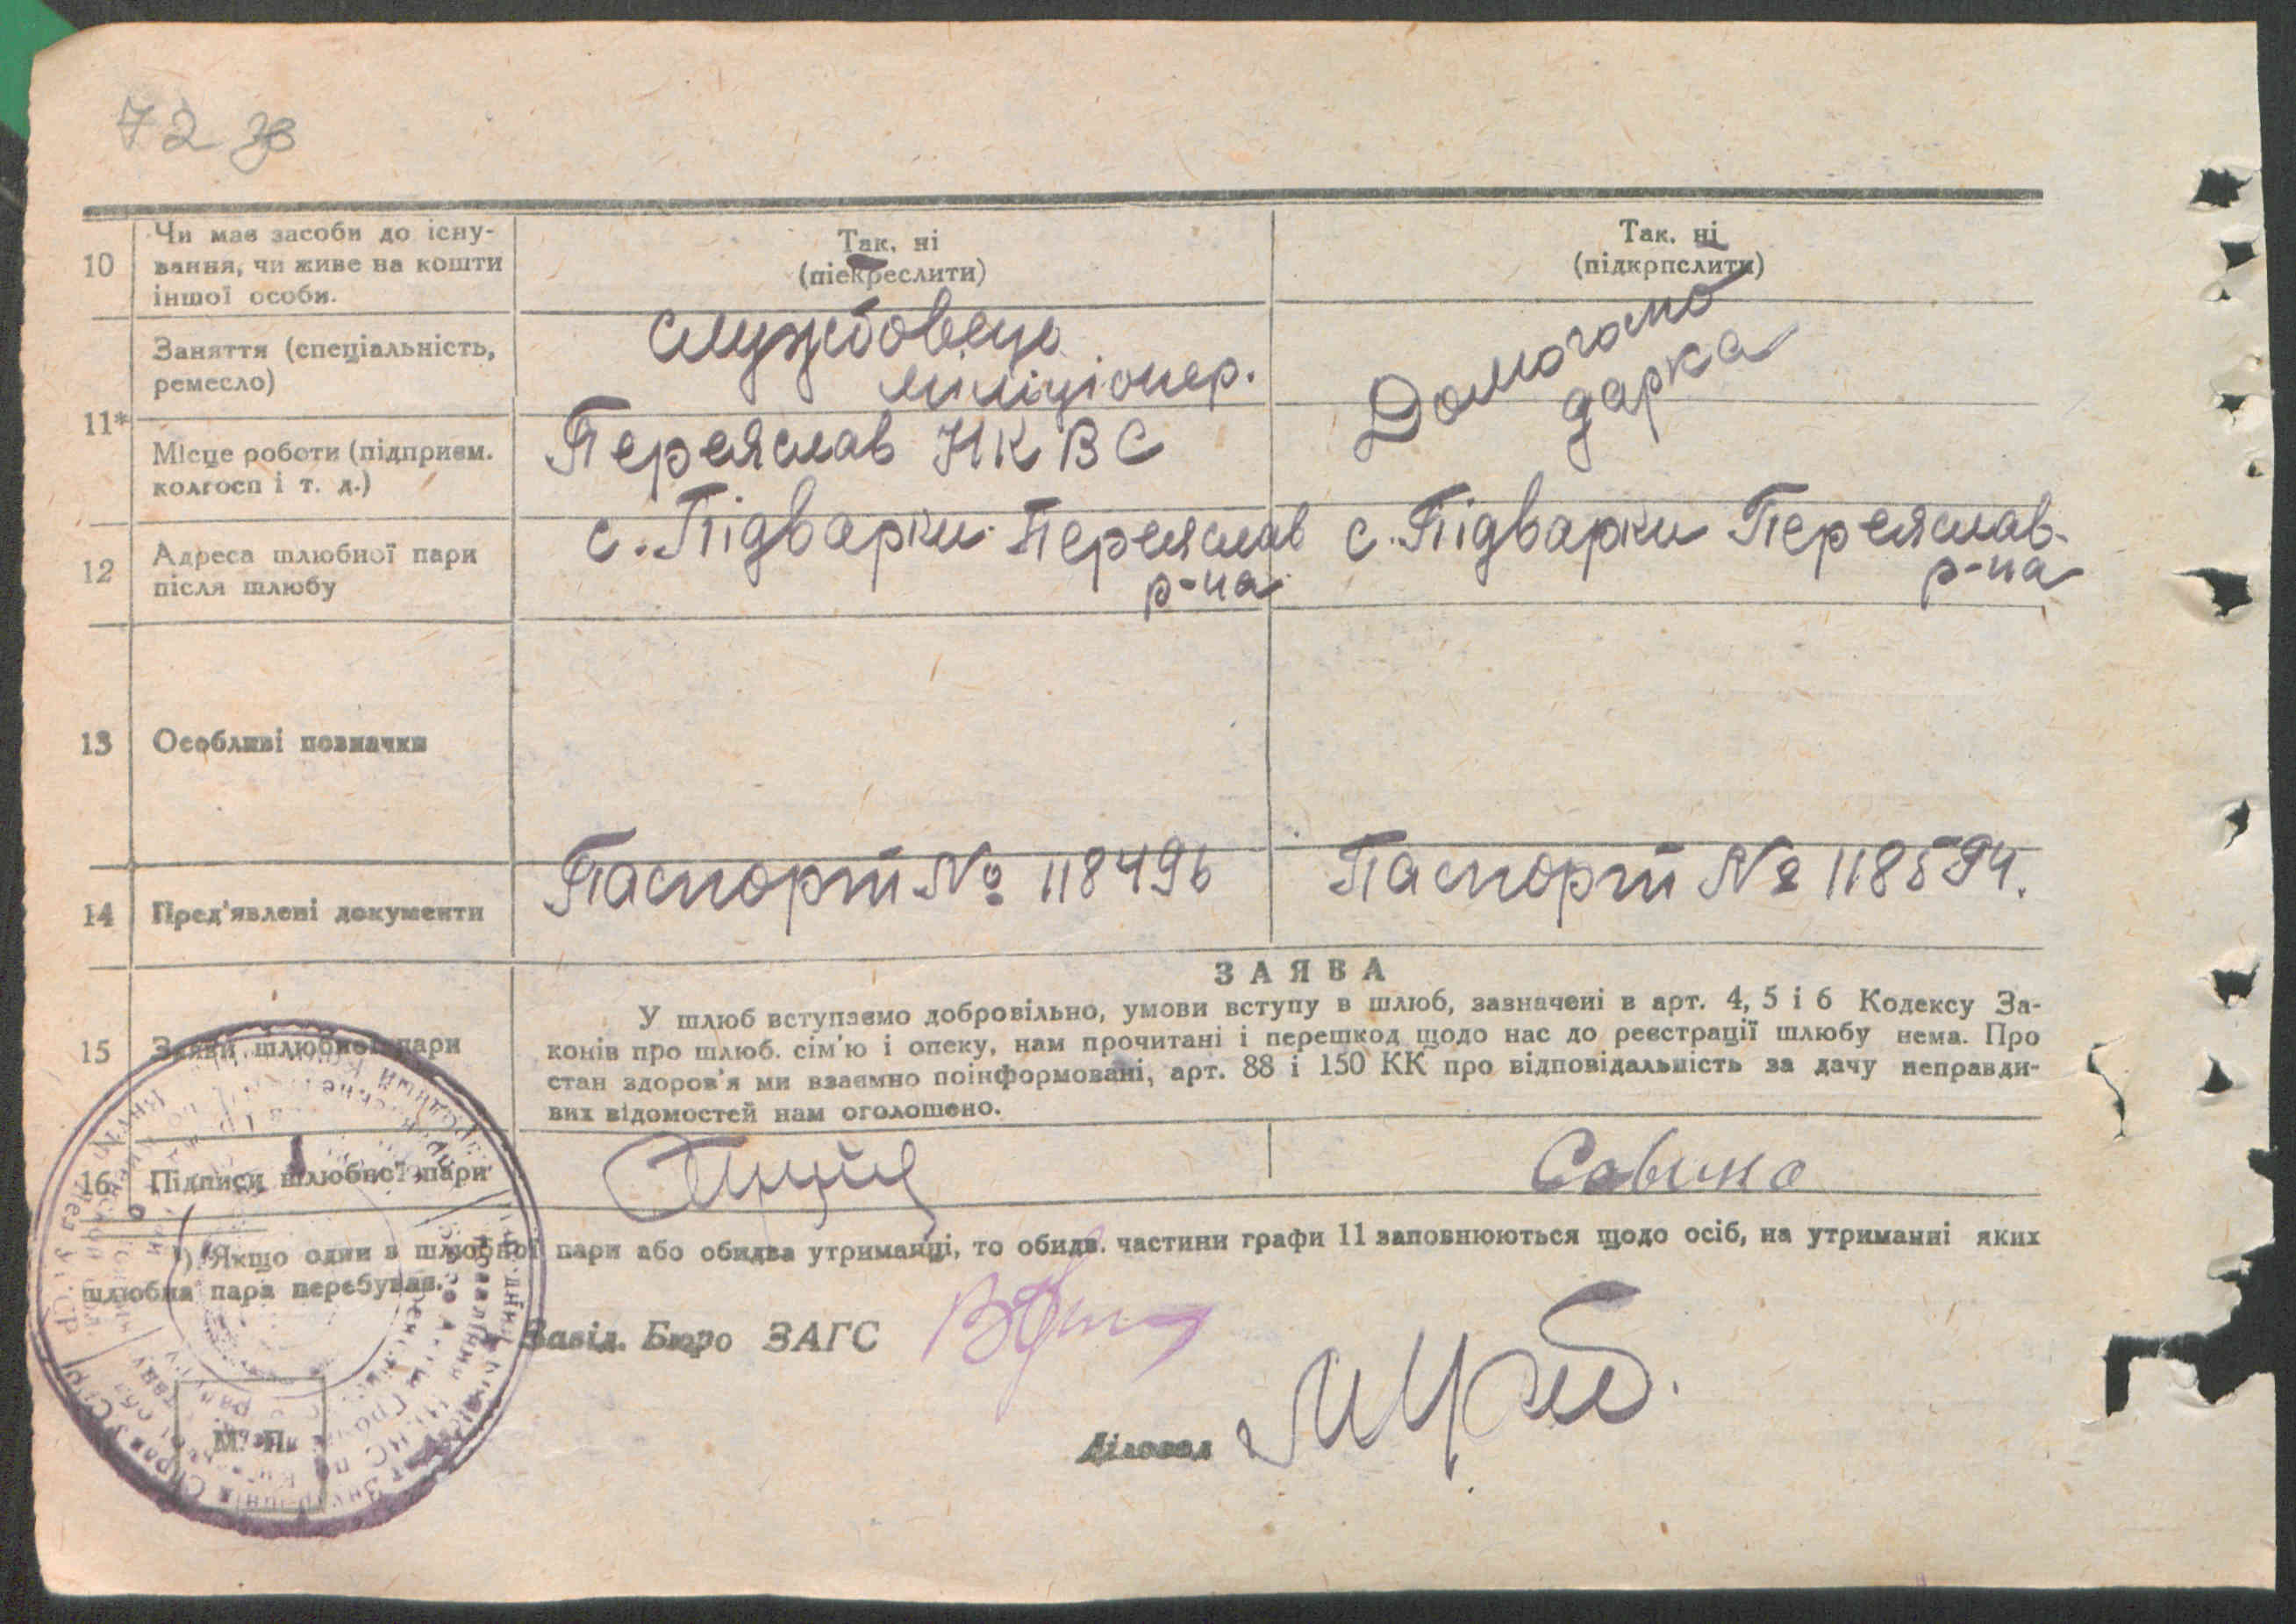 72 зв
10
Чи має засоби до існу-
вання, чи живе на кошти
іншої особи.
Так, ні
(піекреслити)
Так. ні
(підкрпслити)
11*
Заняття (спеціальність,
ремесло)
службовець
міліціонер.
Домогоспо
дарка
Місце роботи (підприєм.
колгосп і т. д.)
Переяслав НКВС
12
Адреса шлюбної пари
після шлюбу
с. Підварки Переяслав
р-на
с. Підварки Переяслав-
р-на
13
Особливі позначки
14
Пред'явлені документи
Паспорт № 118496
Паспорт № 118594.
15
Заяви шлюбної пари
ЗАЯВА
У шлюб вступаємо добровільно, умови вступу в шлюб, зазначені в арт. 4, 5 і 6 Кодексу За-
конів про шлюб. сім'ю і опеку, нам прочитані і перешкод щодо нас до реєстрації шлюбу нема. Про
стан здоров'я ми взаємно поінформовані, арт. 88 і 150 КК про відповідальність за дачу неправди-
вих відомостей нам оголошено.
16
Підписи шлюбної пари
Савина
*) Якщо один з шлюбної пари або обидва утриманці, то обидв. частини графи 11 заповнюються щодо осіб, на утриманні яких
шлюбна пара перебуває.
Завід. Бюро ЗАГС
Діловод
М. П.